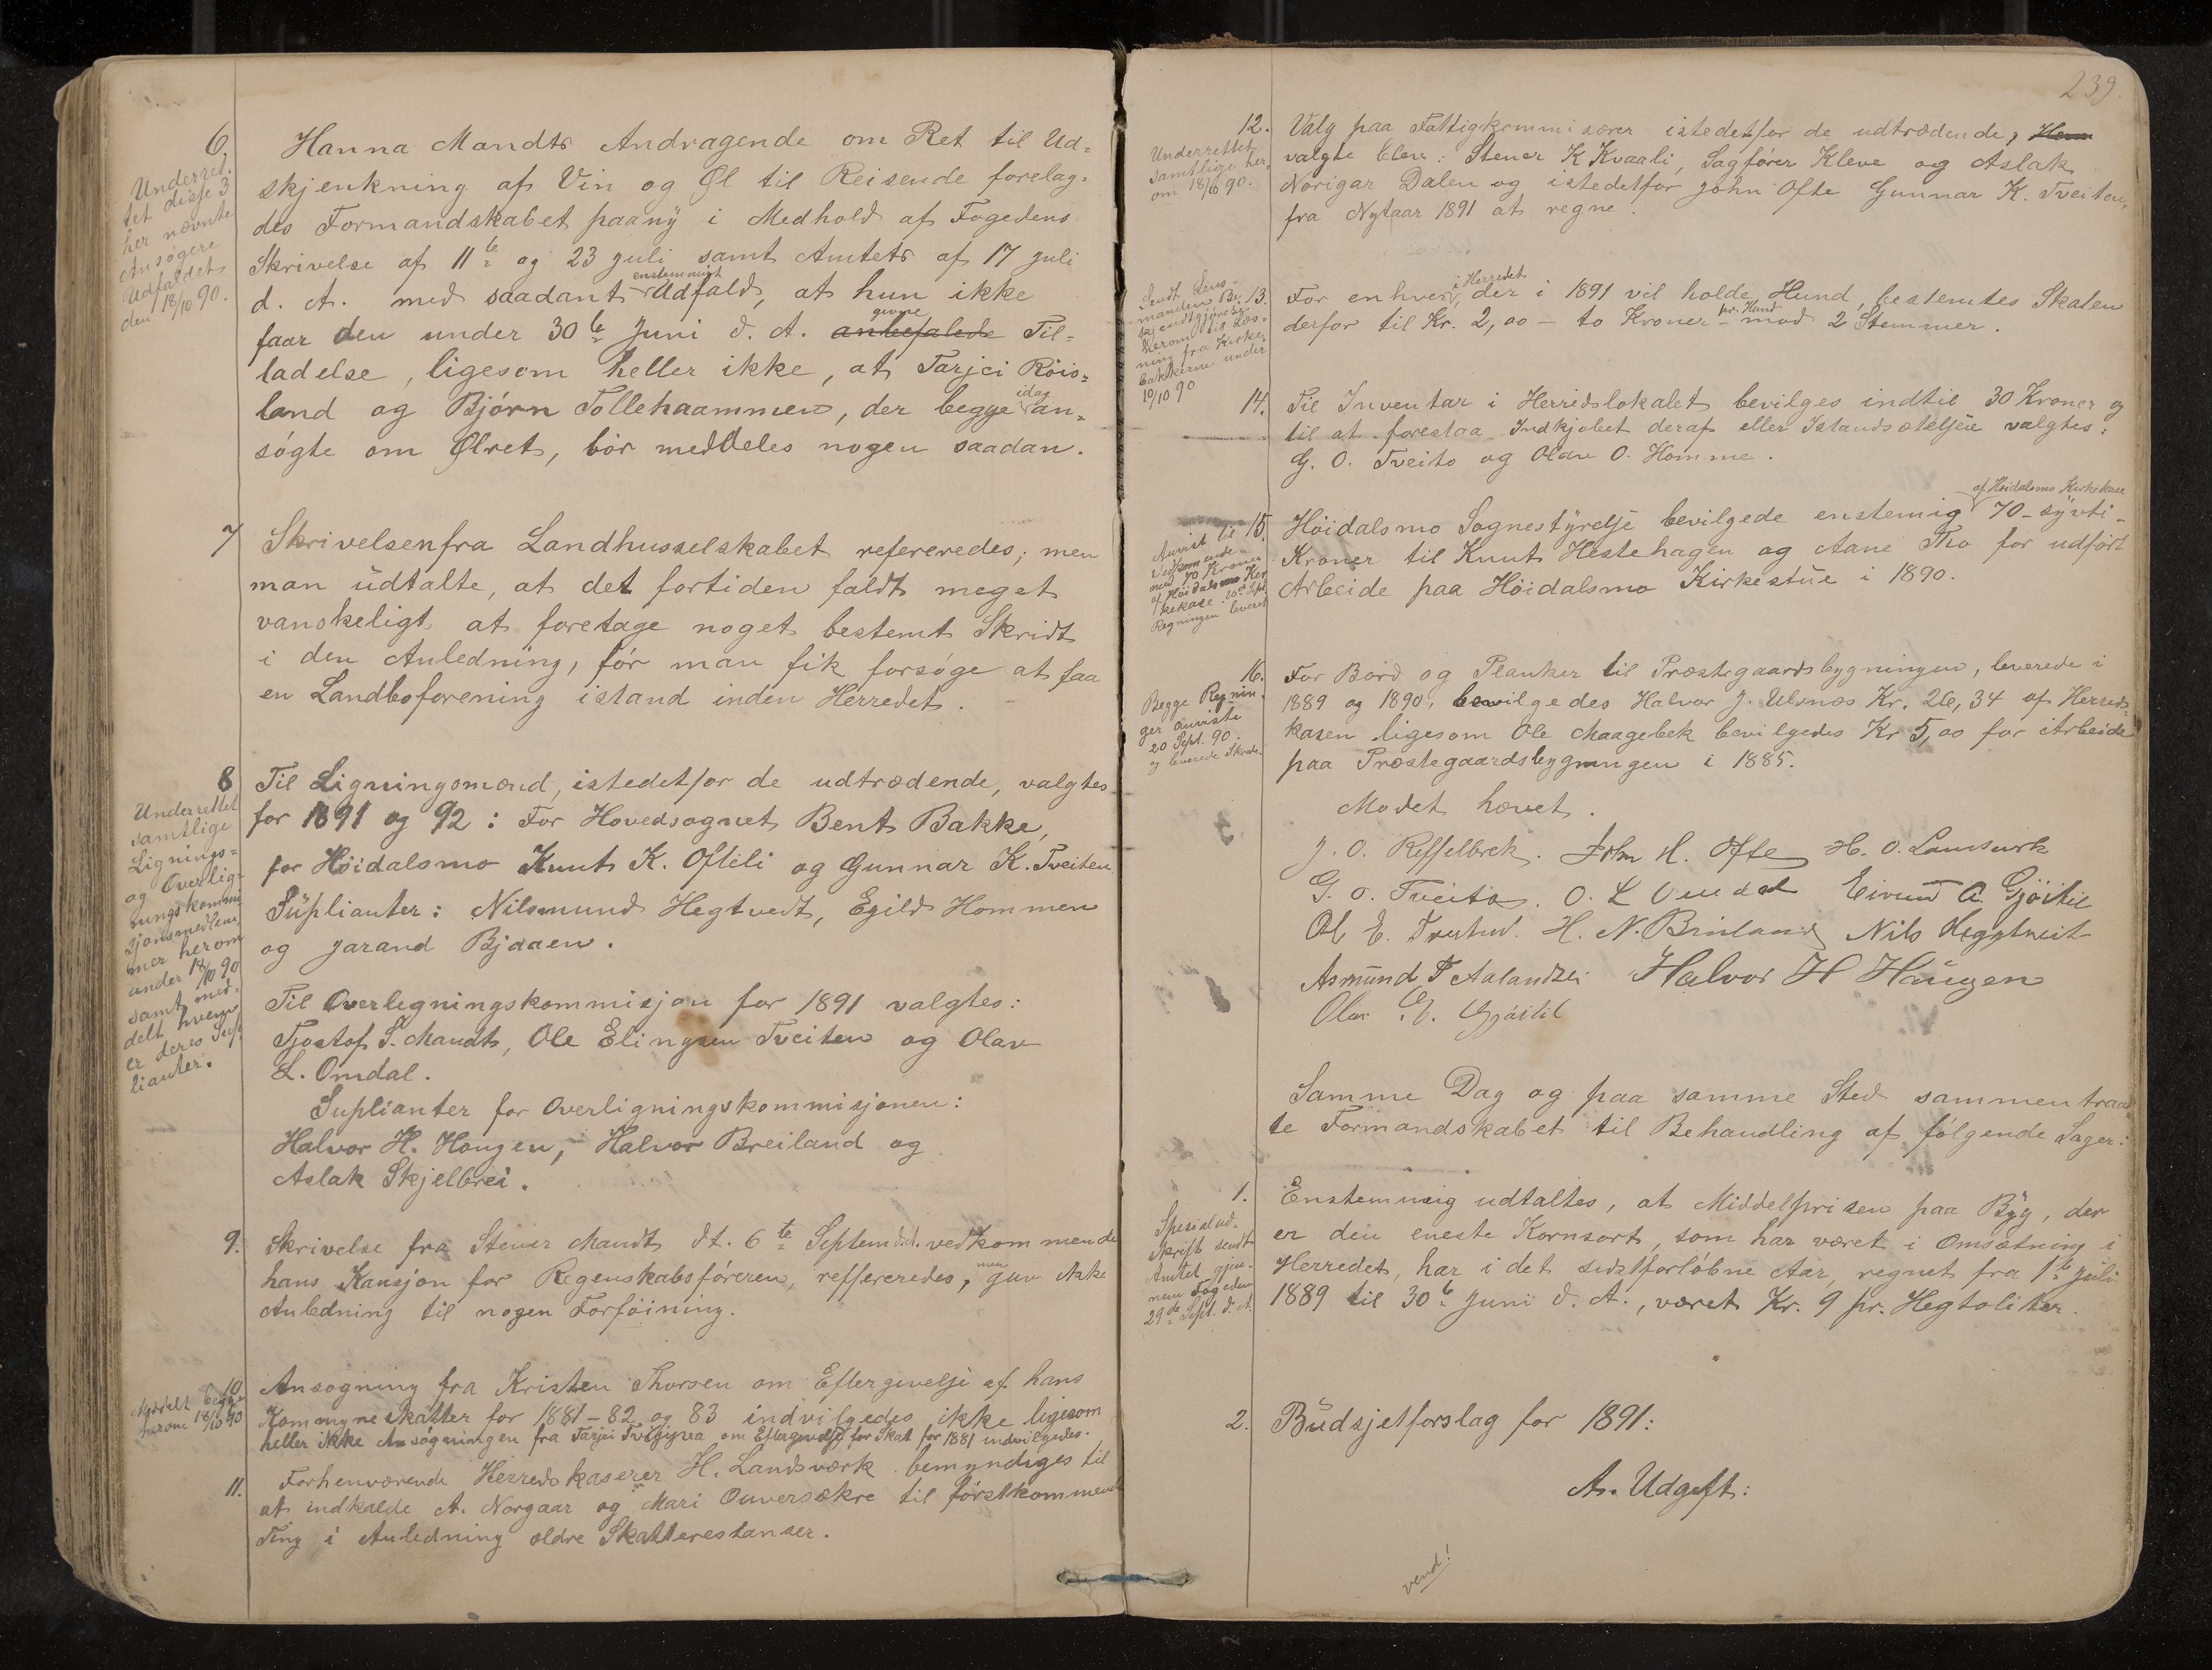 6. Hanna Mandts Andragende om Ret til Ud=
skjenkning af Vin og Øl til Reisende forelag-
des Formandskabet paany i Medhold af Fogedens
Skrivelse af 11te og 23 juli samt Amtets af 17 juli
d. A. med saadant enstemmigt Udfald, at hun ikke
faar den under 30te Juni d. A. anbefalede givne Til=
ladelse, ligesom heller ikke, at Tarjei Röis=
land og Björn Tollehaammen, der begge idag an=
søgte om Ølret, bör meddeles nogen saadan.
Underret-
tet disse 3
her nævnte
Ansøgere
Udfaldet
den 18/10 90.
7 Skrivelsen fra Landhusselskabet refereredes; men
man udtalte, at det fortiden faldt meget
vanskeligt at foretage noget bestemt Skridt
i den Anledning, för man fik forsøge at faa
en Landboforening istand inden Herredet.
8 Til Ligningsmænd, istedetfor de udtrædende, valgtes
for 1891 og 92: For Hovedsognet Bent Bakke,
for Höidalsmo Knut K. Oftili og Gunnar K. Tveiten
Suplianter: Nilsmund Hegtvedt, Egild Hommen
og Jarand Bjaaen.
Til Overlegningskommisjon for 1891 valgtes:
Tjostof S. Mandt, Ole Elingsen Tveiten og Olav
L. Omdal.
Suplianter for Overligningskommisjonen:
Halvor H. Hougen, Halvor Breiland og
Aslak Skjelbrei.
Underrettet
samtlige
Lignings=
og Overlig-
ningskommi
sjonsmedlem
mer herom
under 18/10 90
samt med-
delt hvem
er deres Sup
lianter.
9. Skrivelse fra Stener Mandt dt. 6te Septem d.A. vedkommende
hans Kausjon for Regenskabsföreren, reffereredes, men gav ikke
Anledning til nogen Forföining.
10 Ansøgning fra Kristen Thorsen om Eftergivelse af hans
Kommyneskatter for 1881-82 og 83 indvilgedes ikke ligesom
heller ikke Ansøgningen fra Tarjei om Eftergivelse for Skat for 1881 indvilgedes.
Meddelt begge
herom 18/10 90
11. Forhenværende Herredskaserer H. Landsværk bemyndiges til
at indkalde A. Norgaar og Mari Ouversakre til förstkommende
Ting i Anledning ældre Skatterestanser.
239.
12. Valg paa Fattigkommisærer istedetfor de udtrædende, Hom
valgte blev: Stener K Kvaali, Sagfører Kleve og Aslak
Norigar Dalen og istedetfor John Ofte Gunnar K. Tveiten,
fra Nytaar 1891 at regne.
Underrettet
samtlige her
om 18/10 90.
13. For enhver i Herredet, der i 1891 vil holde Hund, bestemtes Skaten
derfor til Kr. 2,00 - to Kroner - pr. Hund mod 2 Stemmer.
Sendt Lens-
manden Be-
kjendtgjørelse
herom til Læs-
ning fra Kirke-
bakkerne under
10/10 90
14. Til Inventar i Herredslokalet bevilges indtil 30 Kroner og
til at forestaa Indkjøbet deraf eller Istandsætelsen valgtes:
G. O. Tveito og Olav O. Homme.
15. Höidalsmo Sognestyrelse bevilgede enstemig af Höidalsmo Kirkekase 70 - sytti -
Kroner til Knut Hestehagen og Aane Mo for udfört
Arbeide paa Höidalsmo Kirkestue i 1890.
Anvist til
Vedkomende
med 70 Kroner
af Höidalsmo Kir
kekase 20de Sept
Regningen leveret
16. For Bord og Planker til Præstegaardsbygningen, leverede i
1889 og 1890, bevilgedes Halvor J. Ulsnæs Kr. 26,34 af Herreds-
kasen ligesom Ole Maagebek bevilgedes Kr 5,00 for Arbeide
paa Præstegaardsbygningen i 1885.
Begge Regnin-
ger anviste
20 Sept. 90.
og leverede
Mødet hævet.
J. O. Reffelbrek. John H. Ofte H. O. Landsverk
G. O. Tveito. O. L Omdal Eivind A. Gjöitil
Ol E. H. N. Breiland Nils Heggtveit
Asmund T Aalandsli Halvor H Haugen
Olav G. Gjöitil
Samme Dag og paa samme Sted sammentraad
te Formandskabet til Behandling af følgende Sager:
1. Enstemmig udtaltes, at Middelprisen paa Byg, der
er den eneste Kornsort, som har været i Omsætning i
Herredet, har i det sidstforløbne Aar, regnet fra 1te Juli
1889 til 30te Juni d. A., været Kr. 9 pr. Hegtoliter.
Spesialud-
skrift sendt
Amtet gjen-
nem Fogeden
29de Sept. d. A.
2. Budsjetforslag for 1891:
A. Udgift:
vend!